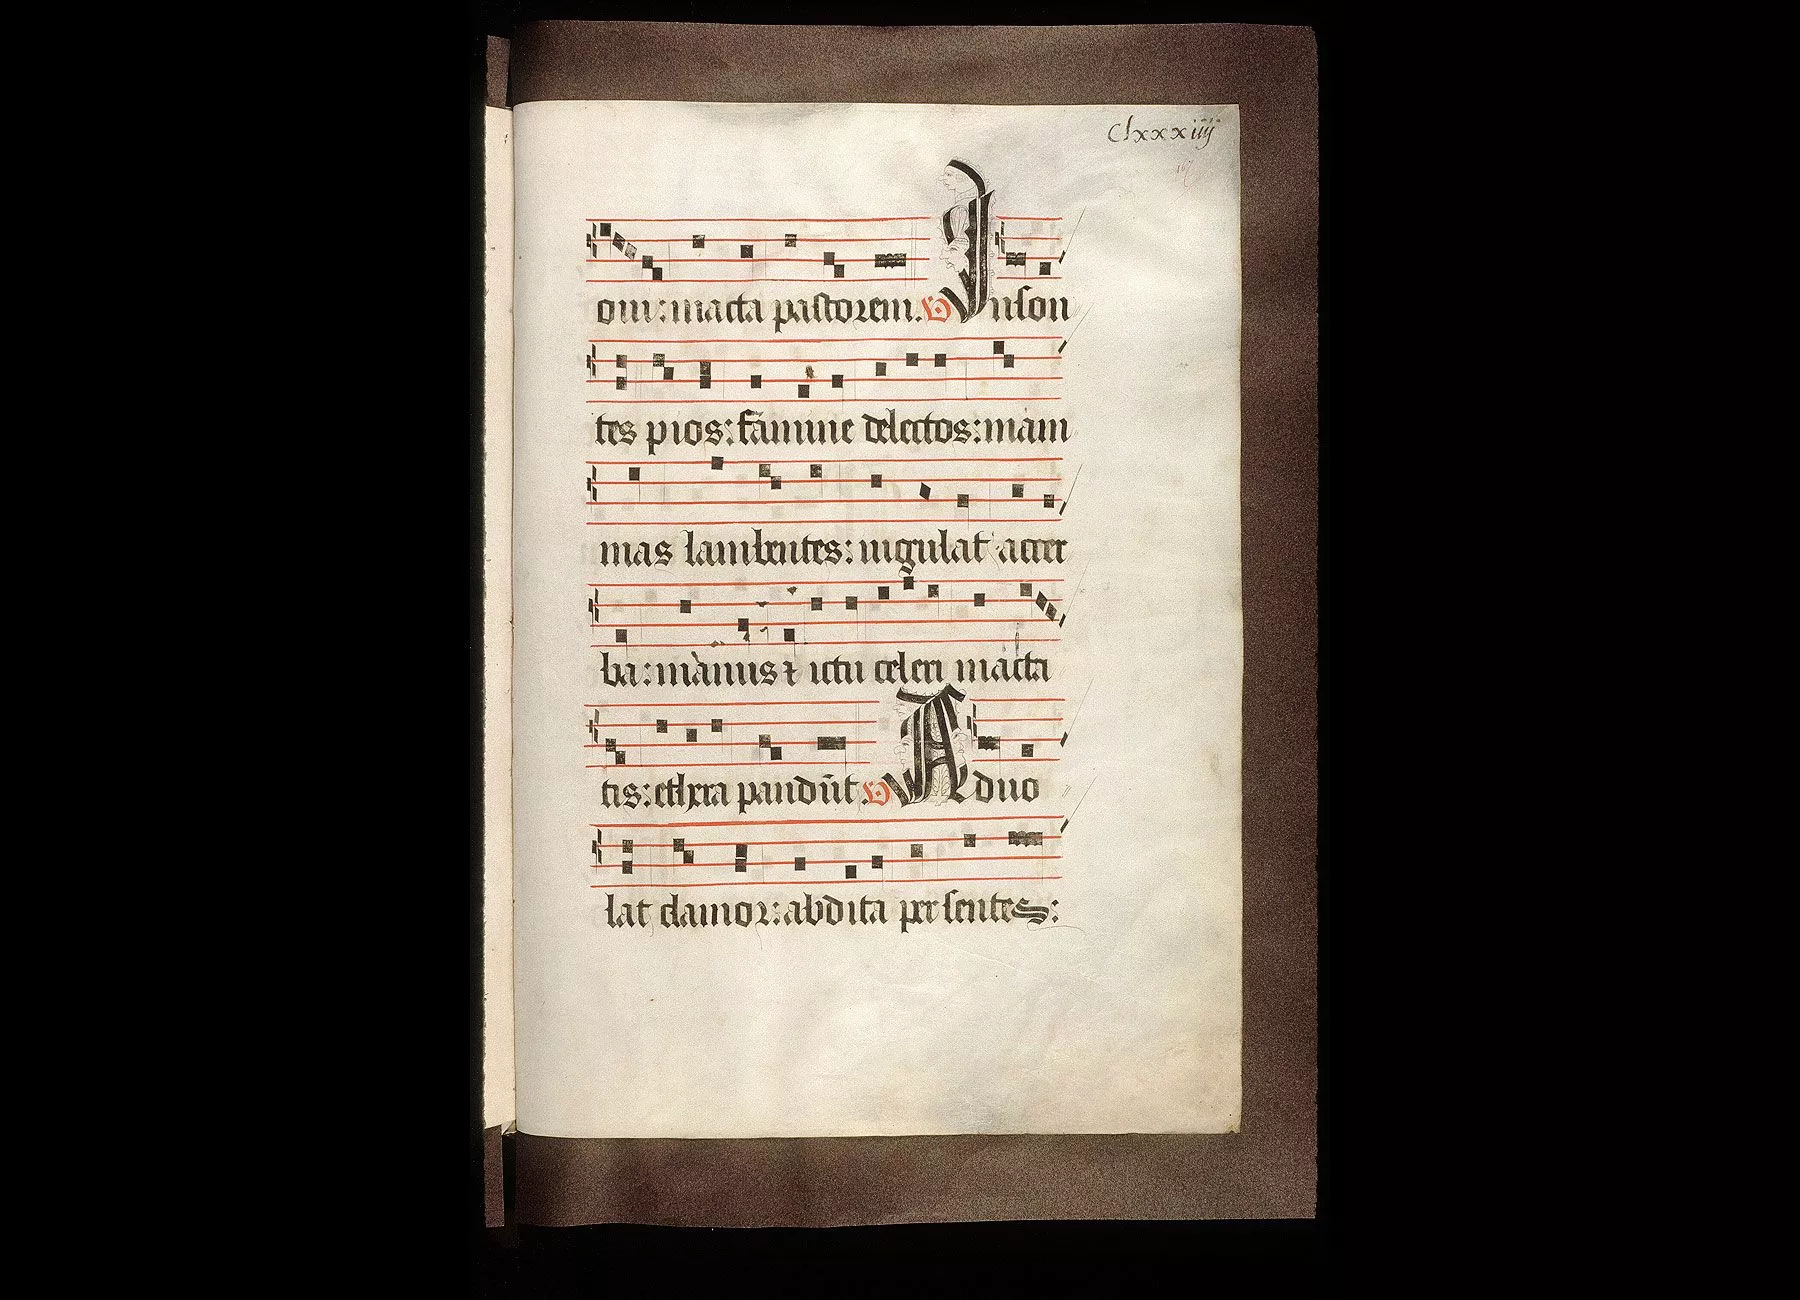 Clxxxiiij
167
om: macta pastorem. V Inson
tes pios: famine delectos: mam
mas lambentes: iugulat acer
ba: manus ⁊ ictu celeri macta
tis: ethera pandūt. V Aduo
lat clamor: abdita per sentes: